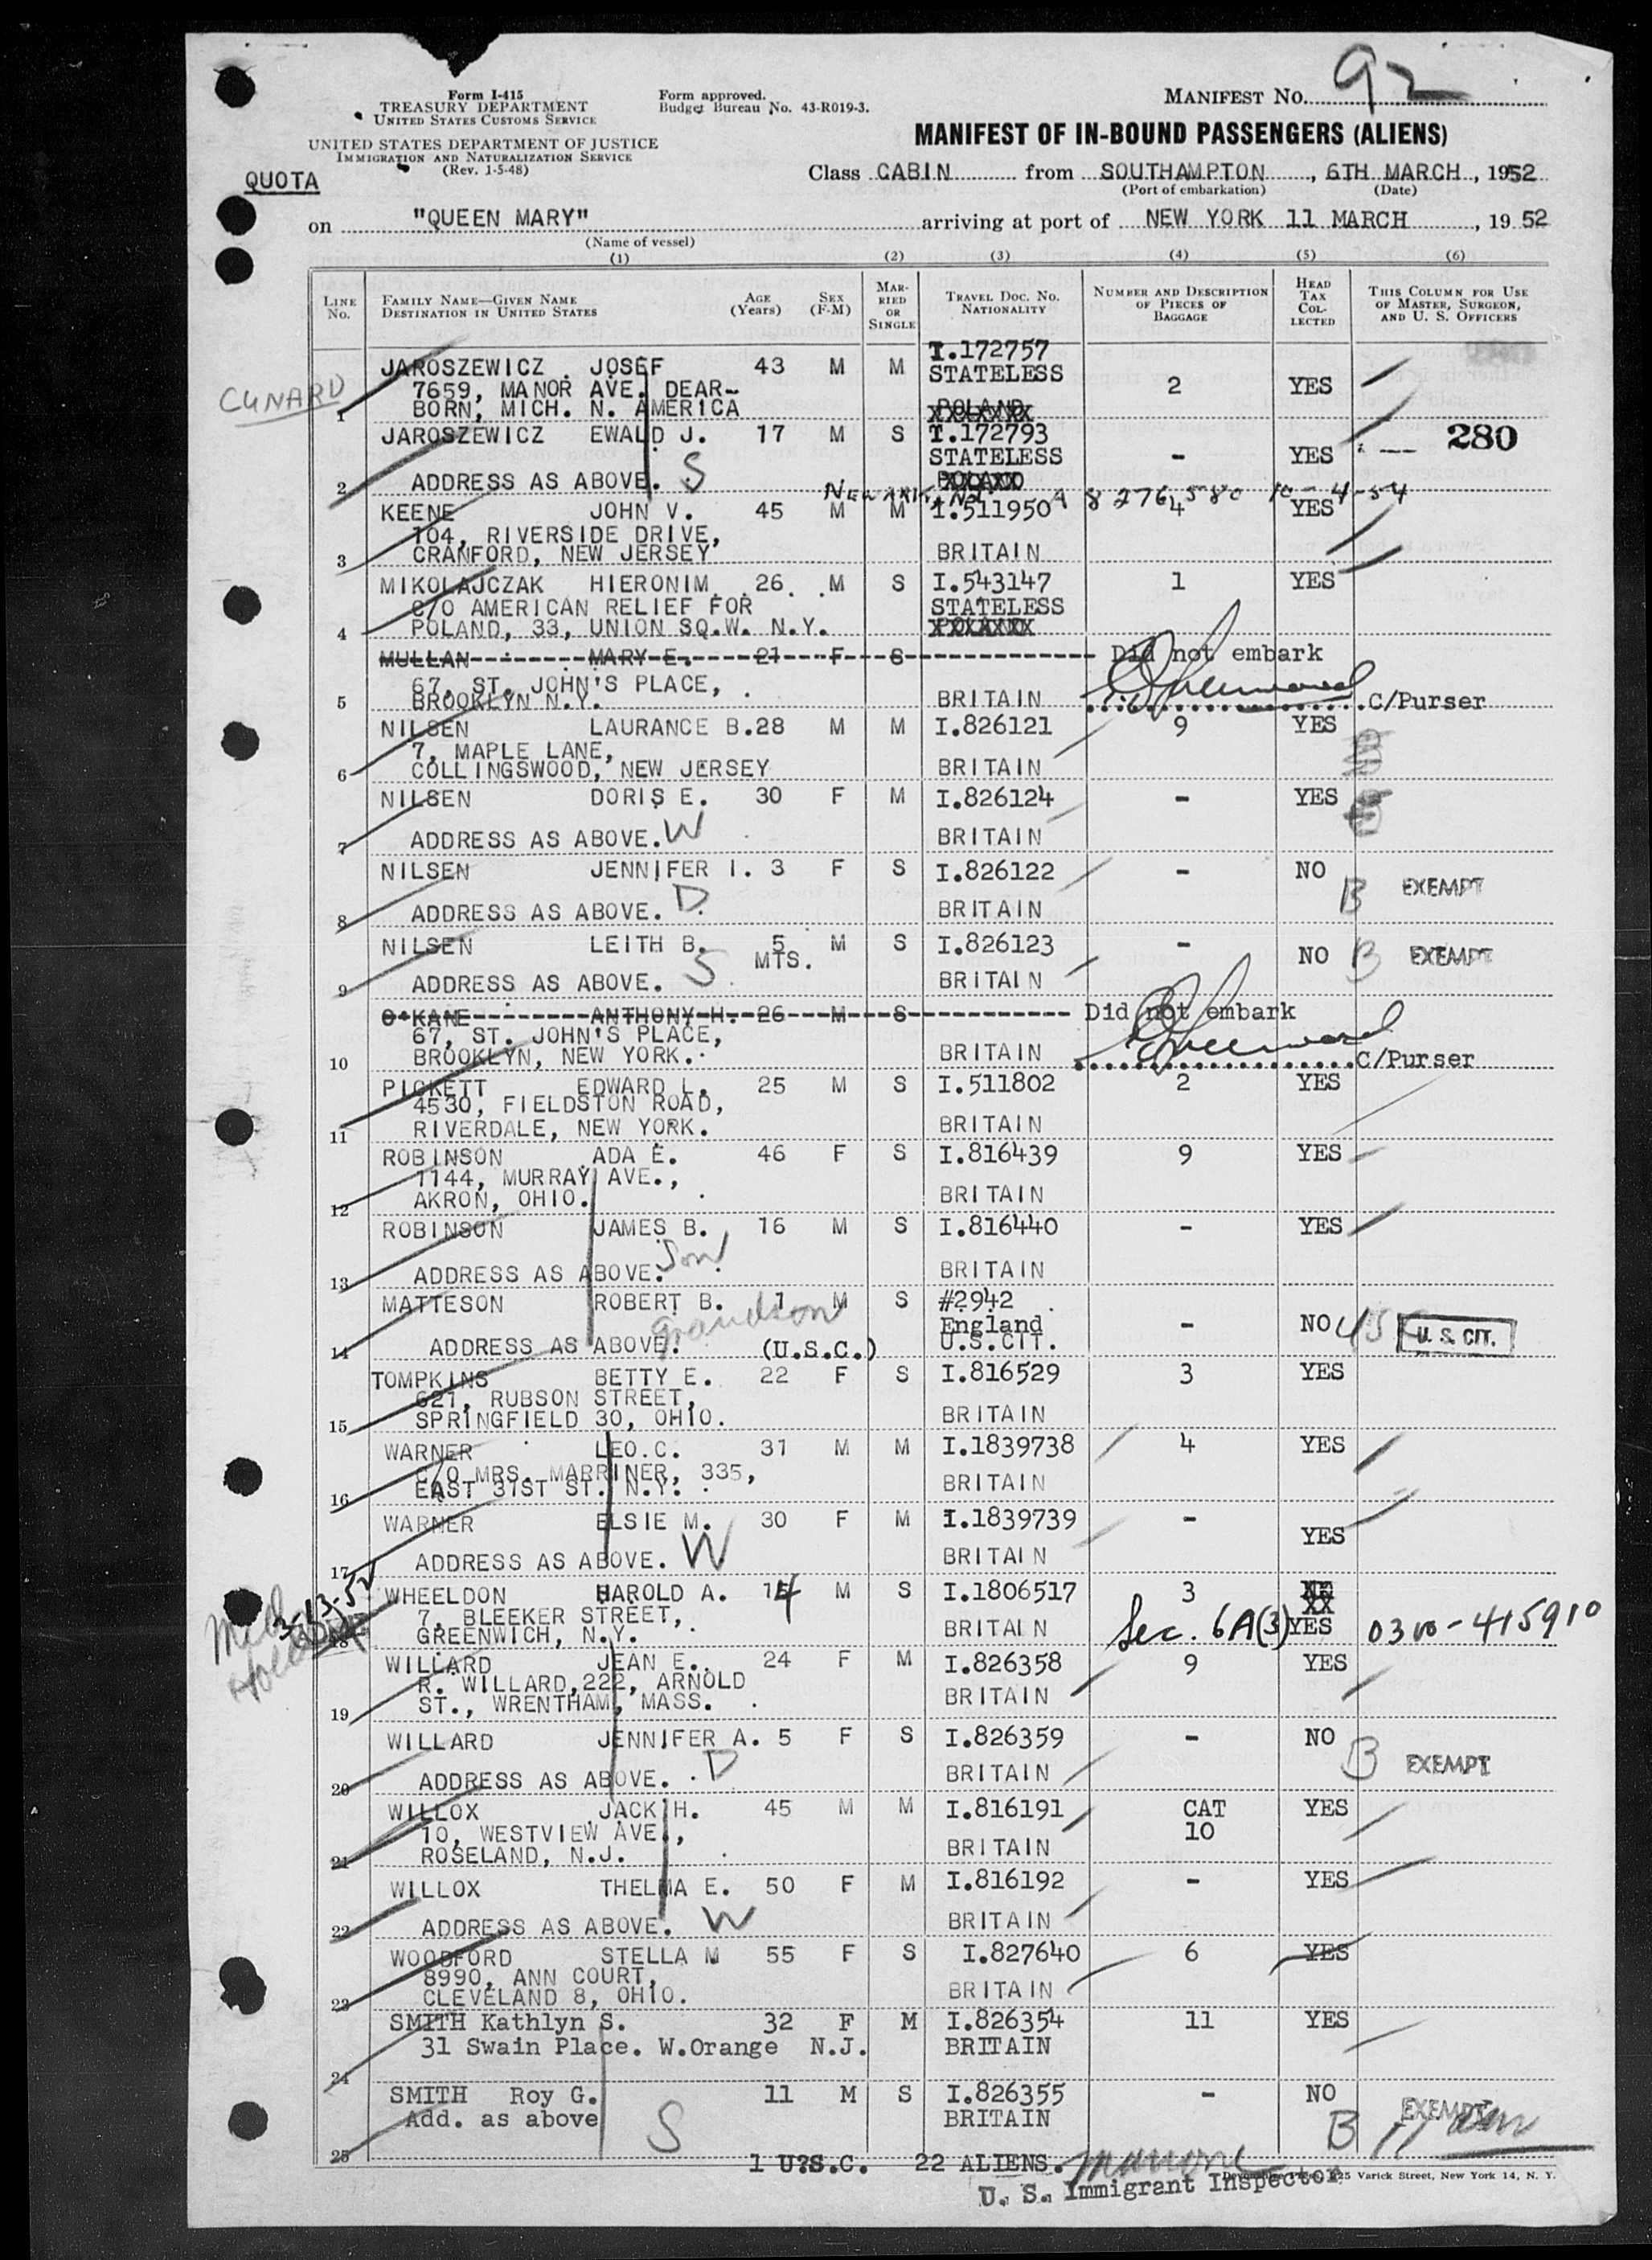 92
Form I-415
TREASURY DEPARTMENT
UNITED STATES CUSTOMS SERVICE
UNITED STATES DEPARTMENT OF JUSTICE
IMMIGRATION AND NATURALIZATION SERVICE
(Rev. 1-5-48)
Form approved.
Budget Bureau No. 43-R019-3.
MANIFEST NO.
MANIFEST OF IN-BOUND PASSENGERS (ALIENS)
QUOTA
Class CABIN from SOUTHAMPTON, 6TH MARCH, 1952
(Port of embarkation) (Date)
on "QUEEN MARY" arriving at port of NEW YORK 11 MARCH, 1952
(Name of vessel)
(1) (2) (3) (4) (5) (6)
LINE No. FAMILY NAME—GIVEN NAME DESTINATION IN UNITED STATES AGE (Years) SEX (F-M) MARRIED OR SINGLE TRAVEL DOC. NO. NATIONALITY NUMBER AND DESCRIPTION OF PIECES OF BAGGAGE HEAD TAX COLLECTED THIS COLUMN FOR USE OF MASTER, SURGEON, AND U. S. OFFICERS
CUNARD
JAROSZEWICZ JOSEF 43 M M I.172757
STATELESS
7659, MANOR AVE. DEAR- 2 YES
1 BORN, MICH. N. AMERICA POLAND
JAROSZEWICZ EWALD J. 17 M S I.172793
STATELESS - YES 280
2 ADDRESS AS ABOVE. S
NEWARK, NJ A 8 276 580 10-4-54
KEENE JOHN V. 45 M M I.511950 4 YES
104, RIVERSIDE DRIVE,
3 CRANFORD, NEW JERSEY BRITAIN
MIKOLAJCZAK HIERONIM. 26. M S I.543147 1 YES
C/O AMERICAN RELIEF FOR STATELESS
4 POLAND, 33, UNION SQ.W. N.Y. XXXXXXX
MULLAN MARY E. 21 F S Did not embark
67, ST. JOHN'S PLACE,
5 BROOKLYN N.Y. BRITAIN C/Purser
NILSEN LAURANCE B. 28 M M I.826121 9 YES
7, MAPLE LANE,
6 COLLINGSWOOD, NEW JERSEY BRITAIN
NILSEN DORIS E. 30 F M I.826124 - YES
7 ADDRESS AS ABOVE. W BRITAIN
NILSEN JENNIFER I. 3 F S I.826122 - NO
8 ADDRESS AS ABOVE. D BRITAIN B EXEMPT
NILSEN LEITH B. 5 MTS. M S I.826123 - NO B EXEMPT
9 ADDRESS AS ABOVE. S BRITAIN
O'KANE ANTHONY H. 26 M S Did not embark
67, ST. JOHN'S PLACE,
10 BROOKLYN, NEW YORK. BRITAIN C/Purser
PICKETT EDWARD L. 25 M S I.511802 2 YES
4530, FIELDSTON ROAD,
11 RIVERDALE, NEW YORK. BRITAIN
ROBINSON ADA E. 46 F S I.816439 9 YES
1144, MURRAY AVE.,
12 AKRON, OHIO. BRITAIN
ROBINSON JAMES B. 16 M S I.816440 - YES
Son
13 ADDRESS AS ABOVE. BRITAIN
MATTESON ROBERT B. 1 M S #2942
Grandson England - NO USC U. S. CIT.
14 ADDRESS AS ABOVE. (U.S.C.) U.S.CIT.
TOMPKINS BETTY E. 22 F S I.816529 3 YES
621, RUBSON STREET,
15 SPRINGFIELD 30, OHIO. BRITAIN
WARNER LEO.C. 31 M M I.1839738 4 YES
C/O MRS. MARRINER, 335,
16 EAST 31ST ST. N.Y. BRITAIN
WARNER ELSIE M. 30 F M I.1839739 - YES
17 ADDRESS AS ABOVE. W BRITAIN
3-13-52
WHEELDON HAROLD A. 14 M S I.1806517 3
7, BLEEKER STREET,
18 GREENWICH, N.Y. BRITAIN Sec. 6A(3) YES 0300-415910
WILLARD JEAN E. 24 F M I.826358 9 YES
R. WILLARD, 222, ARNOLD
19 ST., WRENTHAM, MASS. BRITAIN
WILLARD JENNIFER A. 5 F S I.826359 - NO
20 ADDRESS AS ABOVE. D BRITAIN B EXEMPT
WILLOX JACK H. 45 M M I.816191 CAT 10 YES
10, WESTVIEW AVE.,
21 ROSELAND, N.J. BRITAIN
WILLOX THELMA E. 50 F M I.816192 - YES
22 ADDRESS AS ABOVE. W BRITAIN
WOODFORD STELLA M 55 F S I.827640 6 YES
8990, ANN COURT,
23 CLEVELAND 8, OHIO. BRITAIN
SMITH Kathlyn S. 32 F M I.826354 11 YES
31 Swain Place. W.Orange N.J. BRITAIN
24
SMITH Roy G. 11 M S I.826355 - NO
Add. as above BRITAIN EXEMPT
25 S B
1 U.S.C. 22 ALIENS.
U. S. Immigrant Inspector
225 Varick Street, New York 14, N. Y.